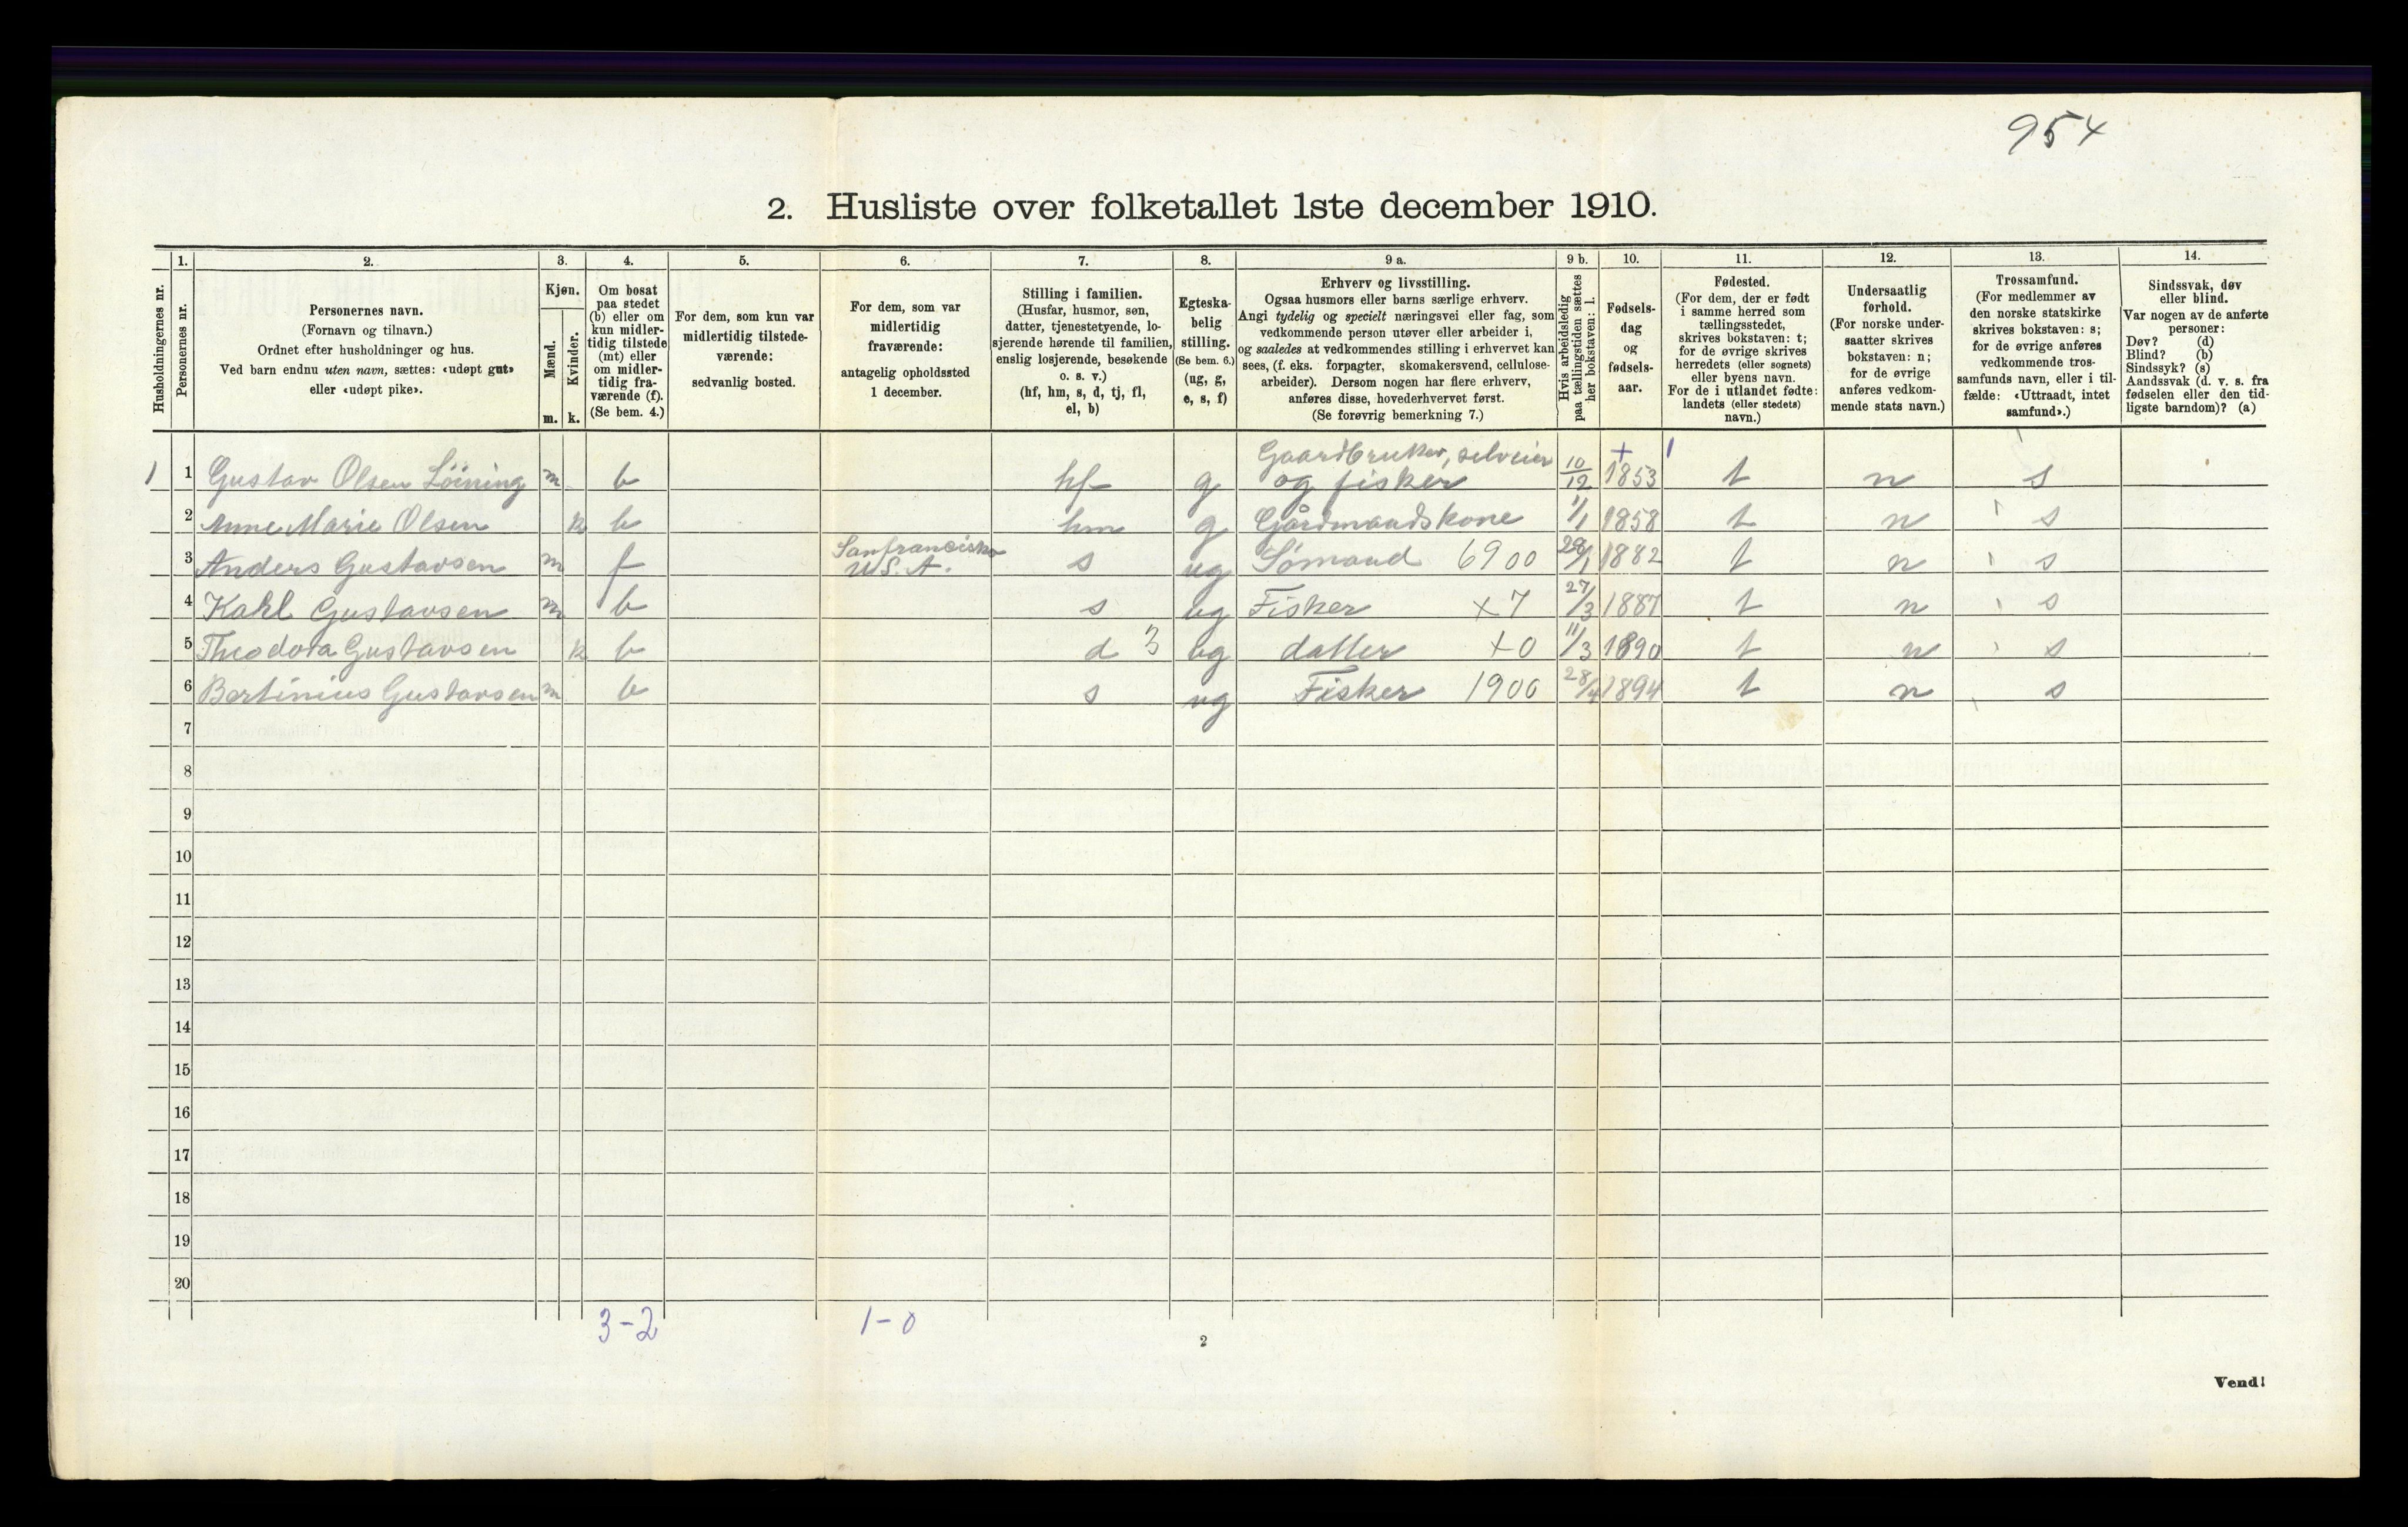 954
2. Husliste over folketallet 1ste december 1910.
Husholdningernes nr.
1.
Personernes nr.
2.
Personernes navn.
(Fornavn og tilnavn.)
Ordnet efter husholdninger og hus.
Ved barn endnu uten navn, sættes: «udøpt gut»
eller «udøpt pike».
3.
Kjøn.
Mænd.
Kvinder.
m. k.
4.
Om bosat
paa stedet
(b) eller om
kun midler-
tidig tilstede
(mt) eller
om midler-
tidig fra-
værende (f).
(Se bem. 4.)
5.
For dem, som kun var
midlertidig tilstede-
værende:
sedvanlig bosted.
6.
For dem, som var
midlertidig
fraværende:
antagelig opholdssted
1 december.
7.
Stilling i familien.
(Husfar, husmor, søn,
datter, tjenestetyende, lo-
sjerende hørende til familien,
enslig losjerende, besøkende
o. s. v.)
(hf, hm, s, d, tj, fl,
el, b)
8.
Egteska-
belig
stilling.
(Se bem. 6.)
(ug, g,
e, s, f)
9 a.
Erhverv og livsstilling.
Ogsaa husmors eller barns særlige erhverv.
Angi tydelig og specielt næringsvei eller fag, som
vedkommende person utøver eller arbeider i,
og saaledes at vedkommendes stilling i erhvervet kan
sees, (f. eks. forpagter, skomakersvend, cellulose-
arbeider). Dersom nogen har flere erhverv,
anføres disse, hovederhvervet først.
(Se forøvrig bemerkning 7.)
9 b.
Hvis arbeidsledig
paa tællingstiden sættes
her bokstaven: l.
10.
Fødsels-
dag
og
fødsels-
aar.
11.
Fødested.
(For dem, der er født
i samme herred som
tællingsstedet,
skrives bokstaven: t;
for de øvrige skrives
herredets (eller sognets)
eller byens navn.
For de i utlandet fødte:
landets (eller stedets)
navn.)
12.
Undersaatlig
forhold.
(For norske under-
saatter skrives
bokstaven: n;
for de øvrige
anføres vedkom-
mende stats navn.)
13.
Trossamfund.
(For medlemmer av
den norske statskirke
skrives bokstaven: s;
for de øvrige anføres
vedkommende tros-
samfunds navn, eller i til-
fælde: «Uttraadt, intet
samfund».)
14.
Sindssvak, døv
eller blind.
Var nogen av de anførte
personer:
Døv? (d)
Blind? (b)
Sindssyk? (s)
Aandssvak (d. v. s. fra
fødselen eller den tid-
ligste barndom)? (a)
1 1 Gustav Olsen Löining m b hf g Gaardbruker, selveier og fisker 10/12 1853 t n s
2 Anne Marie Olsen k b hm g Gårdmandskone 1/1 1858 t n s
3 Anders Gustavsen m f Sanfrancisko U.S.A. s ug Sømand 6900 28/1 1882 t n s
4 Kahl Gustavsen m b s ug Fisker x7 27/3 1887 t n s
5 Theodora Gustavsen k b d 3 ug datter x0 11/3 1890 t n s
6 Bertinius Gustavsen m b s ug Fisker 1900 28/4 1894 t n s
7
8
9
10
11
12
13
14
15
16
17
18
19
20
3-2 1-0
2
Vend!